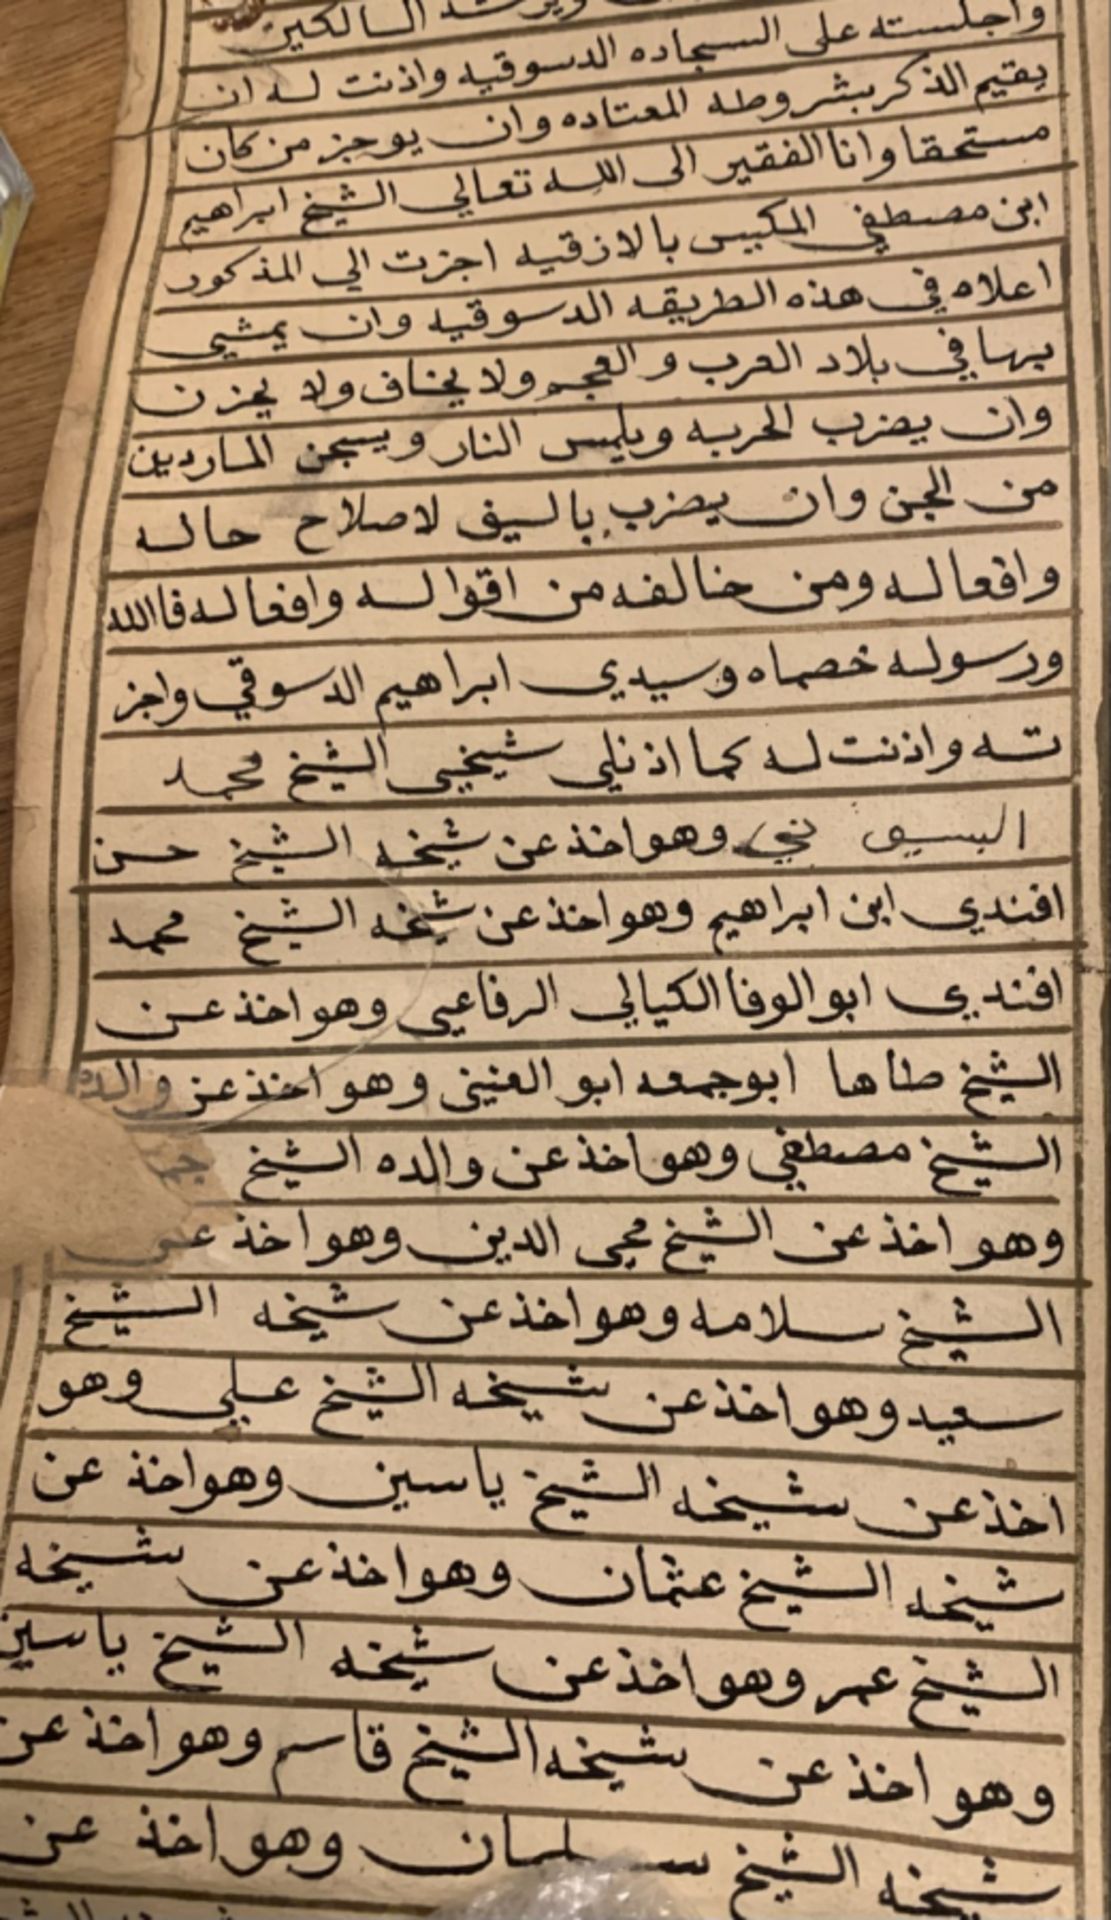 ويرشد السالكين
واجلسته على السجاده الدسوقيه واذنت له ان
يقيم الذكر بشروطه المعتاده وان يوجز من كان
مستحقا وانا الفقير الى الله تعالي الشيخ ابراهيم
ابن مصطفي المكبيس بالازقيه اجزت الي المذكور
اعلاه في هذه الطريقه الدسوقيه وان يمشي
بها في بلاد العرب والعجم ولا يخاف ولا يحزن
وان يضرب الحربه ويلمس النار ويسجن الماردين
من الجن وان يضرب بالسيف لاصلاح حاله
وافعاله ومن خالفه من اقواله وافعاله فاالله
ورسوله خصماه وسيدي ابراهيم الدسوقي واجز
ته واذنت له كما اذنلي شيخي الشيخ محمد
وهو اخذ عن شيخه الشيخ حسن
افندي ابن ابراهيم وهو اخذ عن شيخه الشيخ محمد
افندي ابو الوفا الكيالي الرفاعي وهو اخذ عن
الشيخ طاها ابو جمعه ابو الغيني وهو اخذ عن والده
الشيخ مصطفي وهو اخذ عن والده الشيخ
وهو اخذ عن الشيخ محي الدين وهو اخذ عن
الشيخ سلامه وهو اخذ عن شيخه الشيخ
سعيد وهو اخذ عن شيخه الشيخ علي وهو
اخذ عن شيخه الشيخ ياسين وهو اخذ عن
شيخه الشيخ عثمان وهو اخذ عن شيخه
الشيخ عمر وهو اخذ عن شيخه الشيخ ياسين
وهو اخذ عن شيخه الشيخ قاسم وهو اخذ عن
شيخه الشيخ سليمان وهو اخذ عن